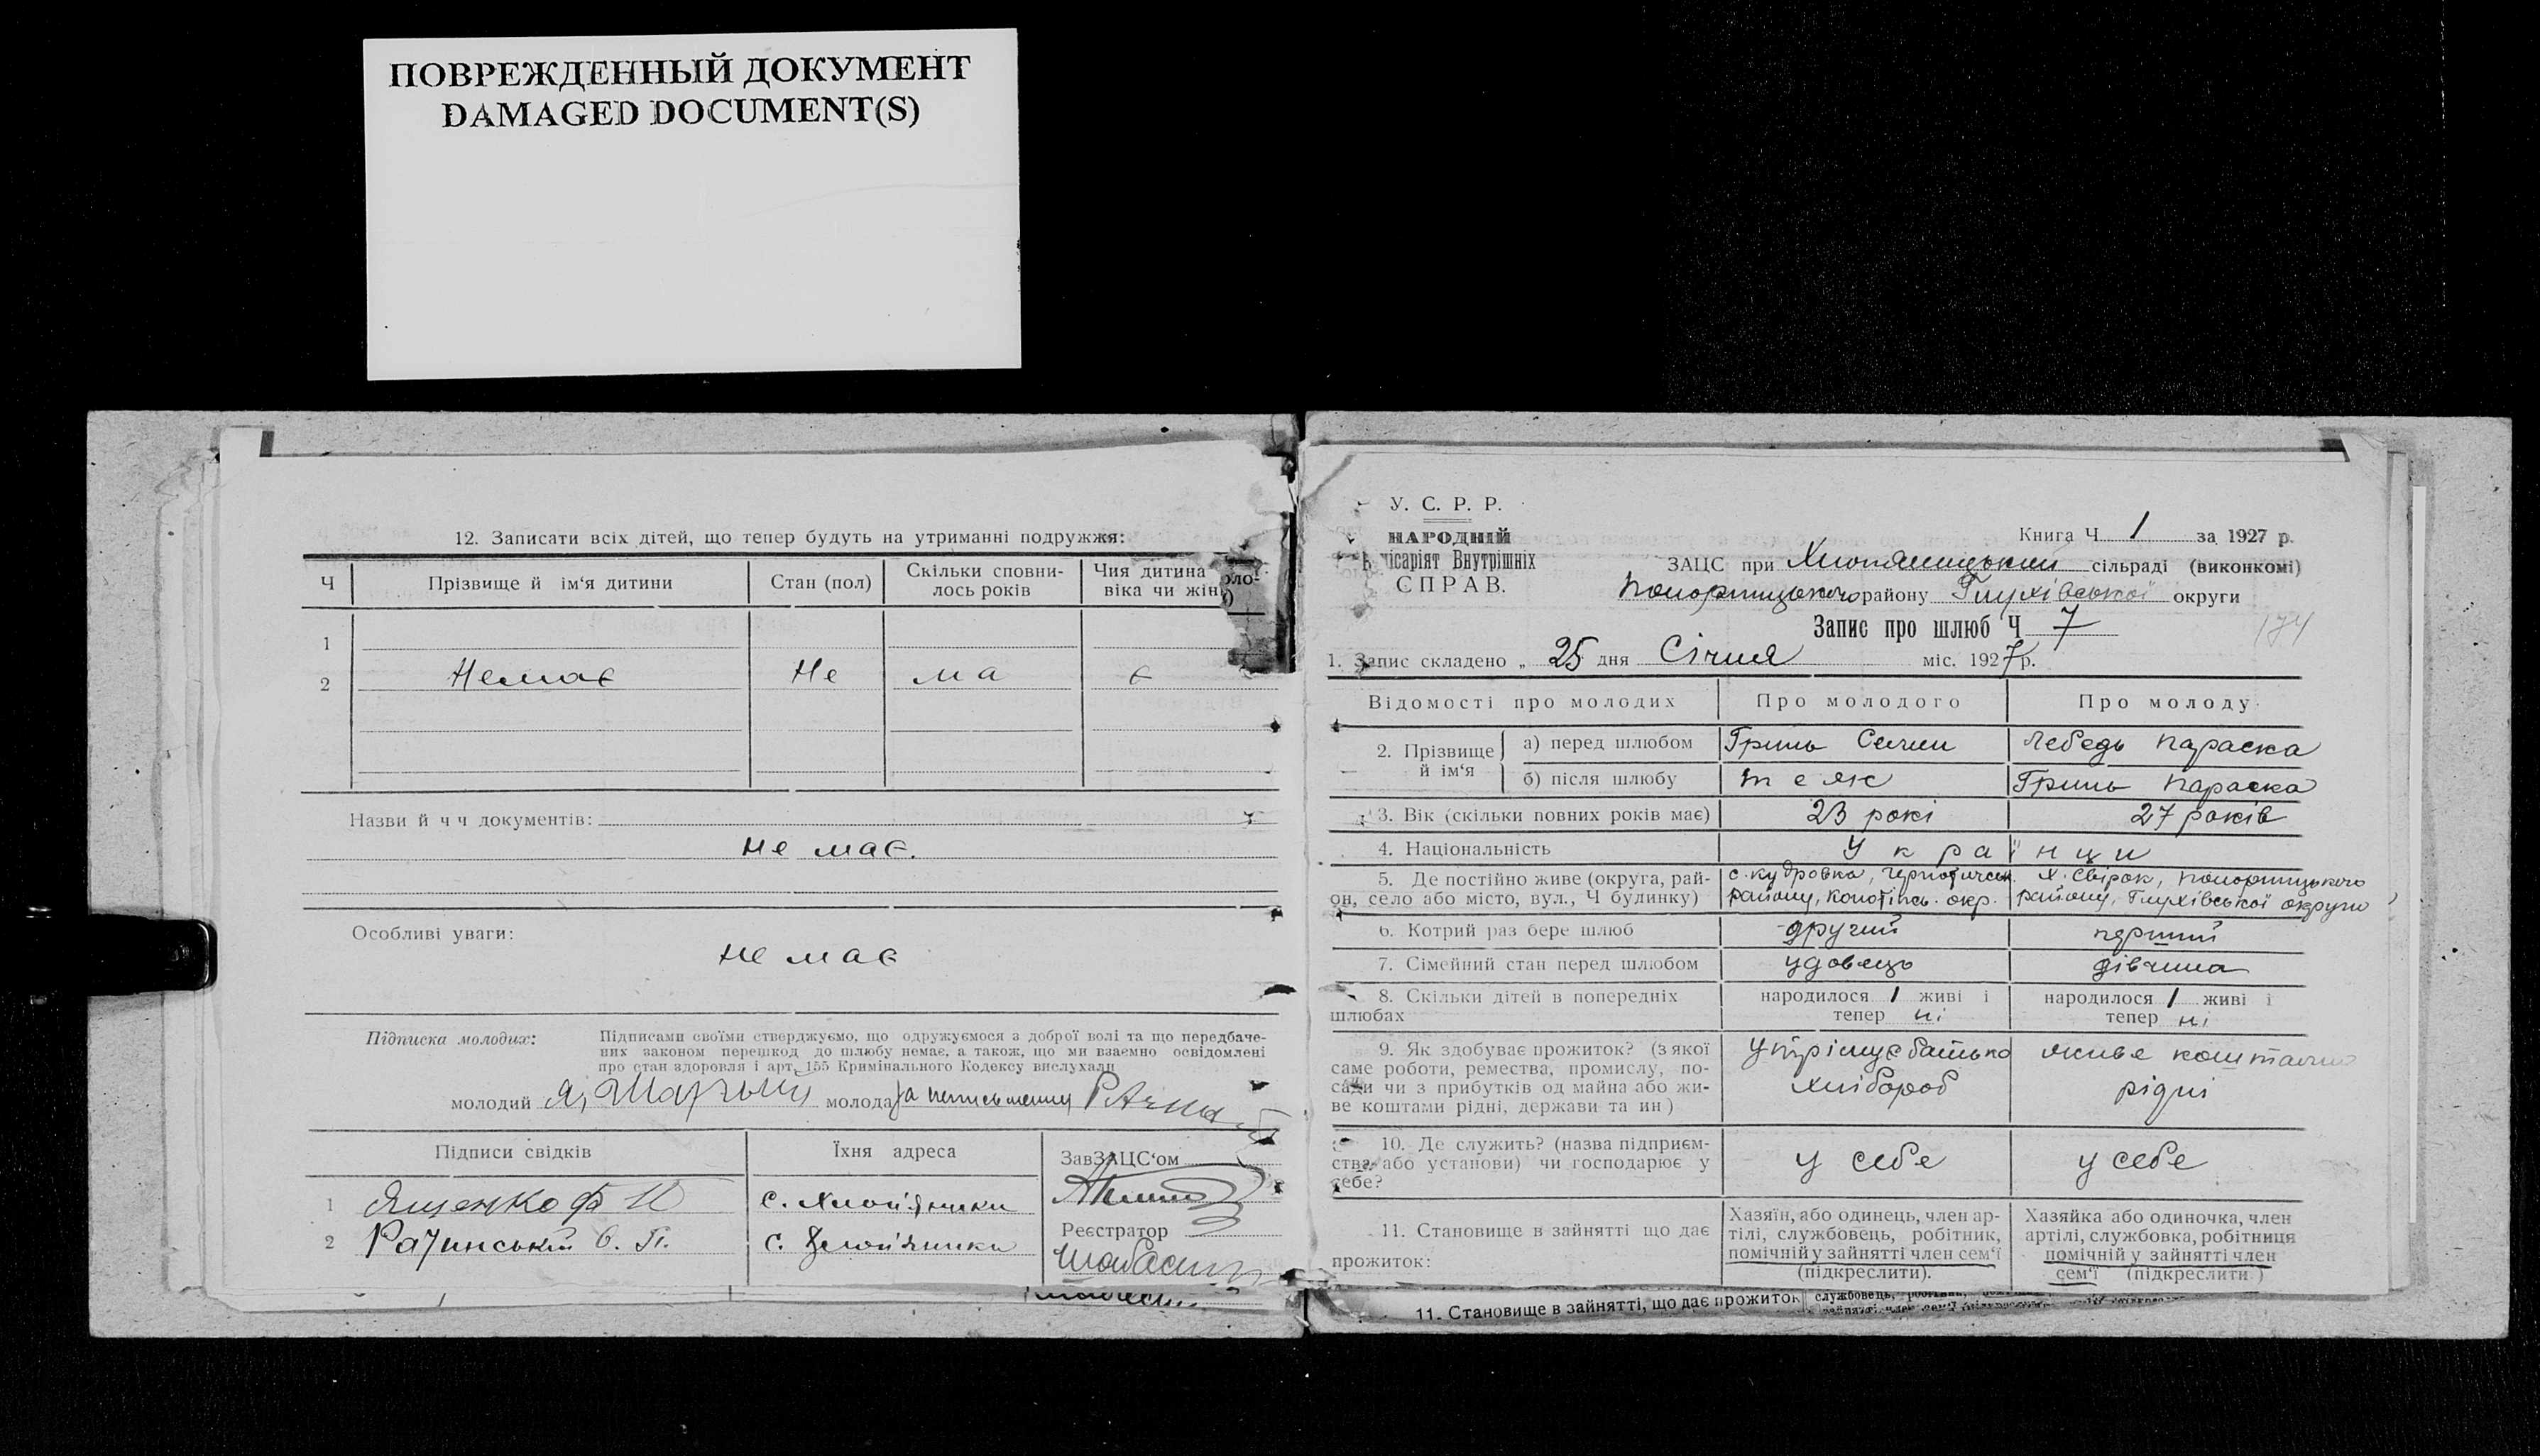 ПОВРЕЖДЕННЫЙ ДОКУМЕНТ
DAMAGED DOCUMENT(S)
12. Записати всіх дітей, що тепер будуть на утриманні подружжя:
Ч Прізвище й ім‘я дитини Стан (пол) Скільки сповни-лось років Чия дитина віка чи жін
1
2 Немає Не ма є
Назви й ч ч документів:
не має.
Особливі уваги:
не має
Підписка молодих: Підписами своїми стверджуємо, що одружуємося з доброї волі та що передбаче-
них законом перешкод до шлюбу немає, а також, що ми взаємно освідомлені
про стан здоровля і арт. 155 Кримінального Кодексу вислухали
молодий молода
Підписи свідків Їхня адреса ЗавЗАЦС‘ом
1 Ященко Ф с. Хлоп'яники
Реєстратор
2 Рачинський с. Хлоп'яники
У. С. Р. Р.
НАРОДНІЙ
місаріят Внутрішніх
СПРАВ.
Книга Ч 1 за 1927 р.
ЗАЦС при Хлопяницький сільраді (виконкомі)
Понорницького району Глухівської округи
Запис про шлюб Ч 7
174
1. Запис складено „ 25 дня Січня міс. 1927 р.
Відомості про молодих Про молодого Про молоду
2. Прізвище й ім‘я а) перед шлюбом Гринь Семен Лебедь Параска
б) після шлюбу теж Гринь Параска
3. Вік (скільки повних років має) 23 рокі 27 років
4. Національність Українци
5. Де постійно живе (округа, рай- с. Кудровка, х. Свірок, Понорницького
он, село або місто, вул., Ч будинку) району, Конотіпсь. окр. району, Глухівської округи
6. Котрий раз бере шлюб другий перший
7. Сімейний стан перед шлюбом удовець дівчина
8. Скільки дітей в попередніх народилося 1 живі і народилося 1 живі і
шлюбах тепер ні тепер ні
9. Як здобуває прожиток? (з якої Утрімує батько живе коштами
саме роботи, ремества, промислу, по-
сади чи з прибутків од майна або жи- хлібороб рідні
ве коштами рідні, держави та ин)
10. Де служить? (назва підприєм-
ства або установи) чи господарює у у себе у себе
себе?
11. Становище в зайнятті що дає
прожиток:
Хазяїн, або одинець, член ар-
тілі, службовець, робітник,
помічній у зайнятті член сем‘ї
(підкреслити).
Хазяйка або одиночка, член
артілі, службовка, робітниця
помічній у зайнятті член
сем‘ї (підкреслити)
11. Становище в зайнятті, що дає прожиток